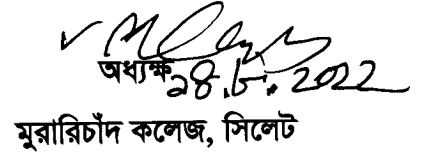 অধ্যক্ষ
২৪.৮.2022
মুরারিচাঁদ কলেজ, সিলেট